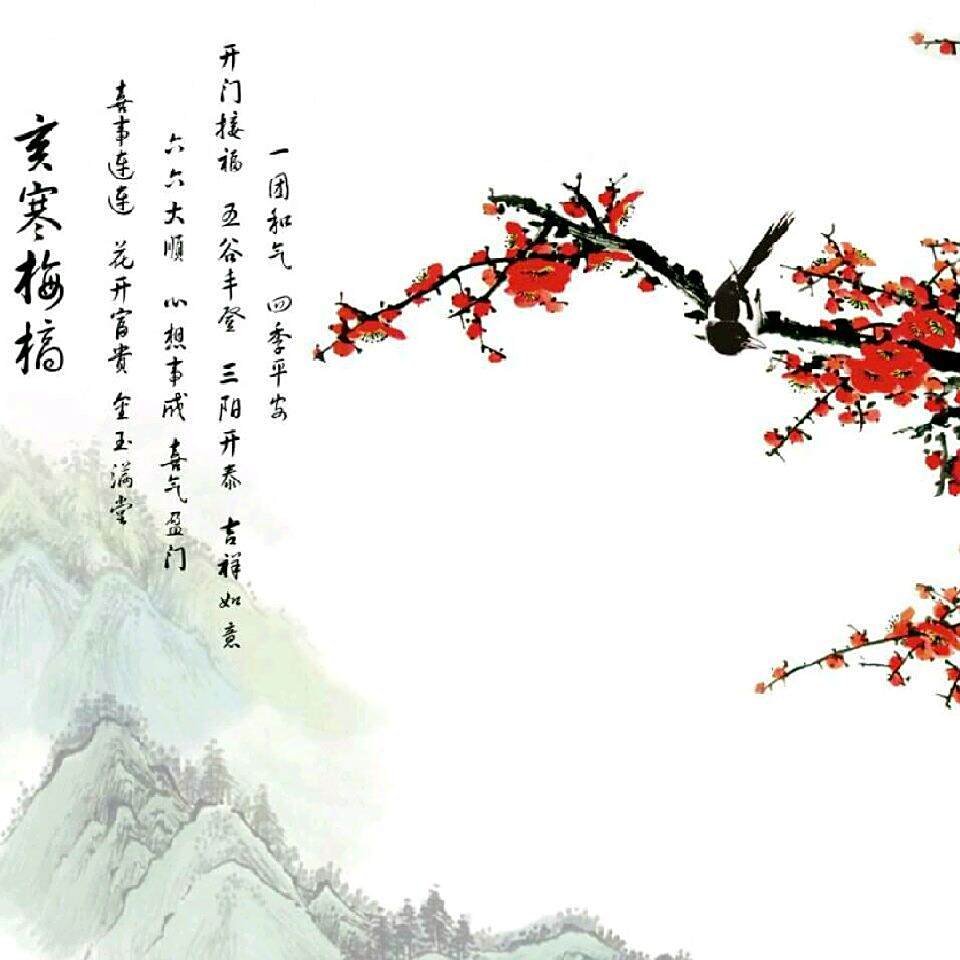 一团和气 四季平安
开门接福 五谷丰登 三阳开泰 吉祥如意
六六大順 心想事成 喜气盈门
喜事连连 花开富貴 金玉满堂
亥寒梅摛